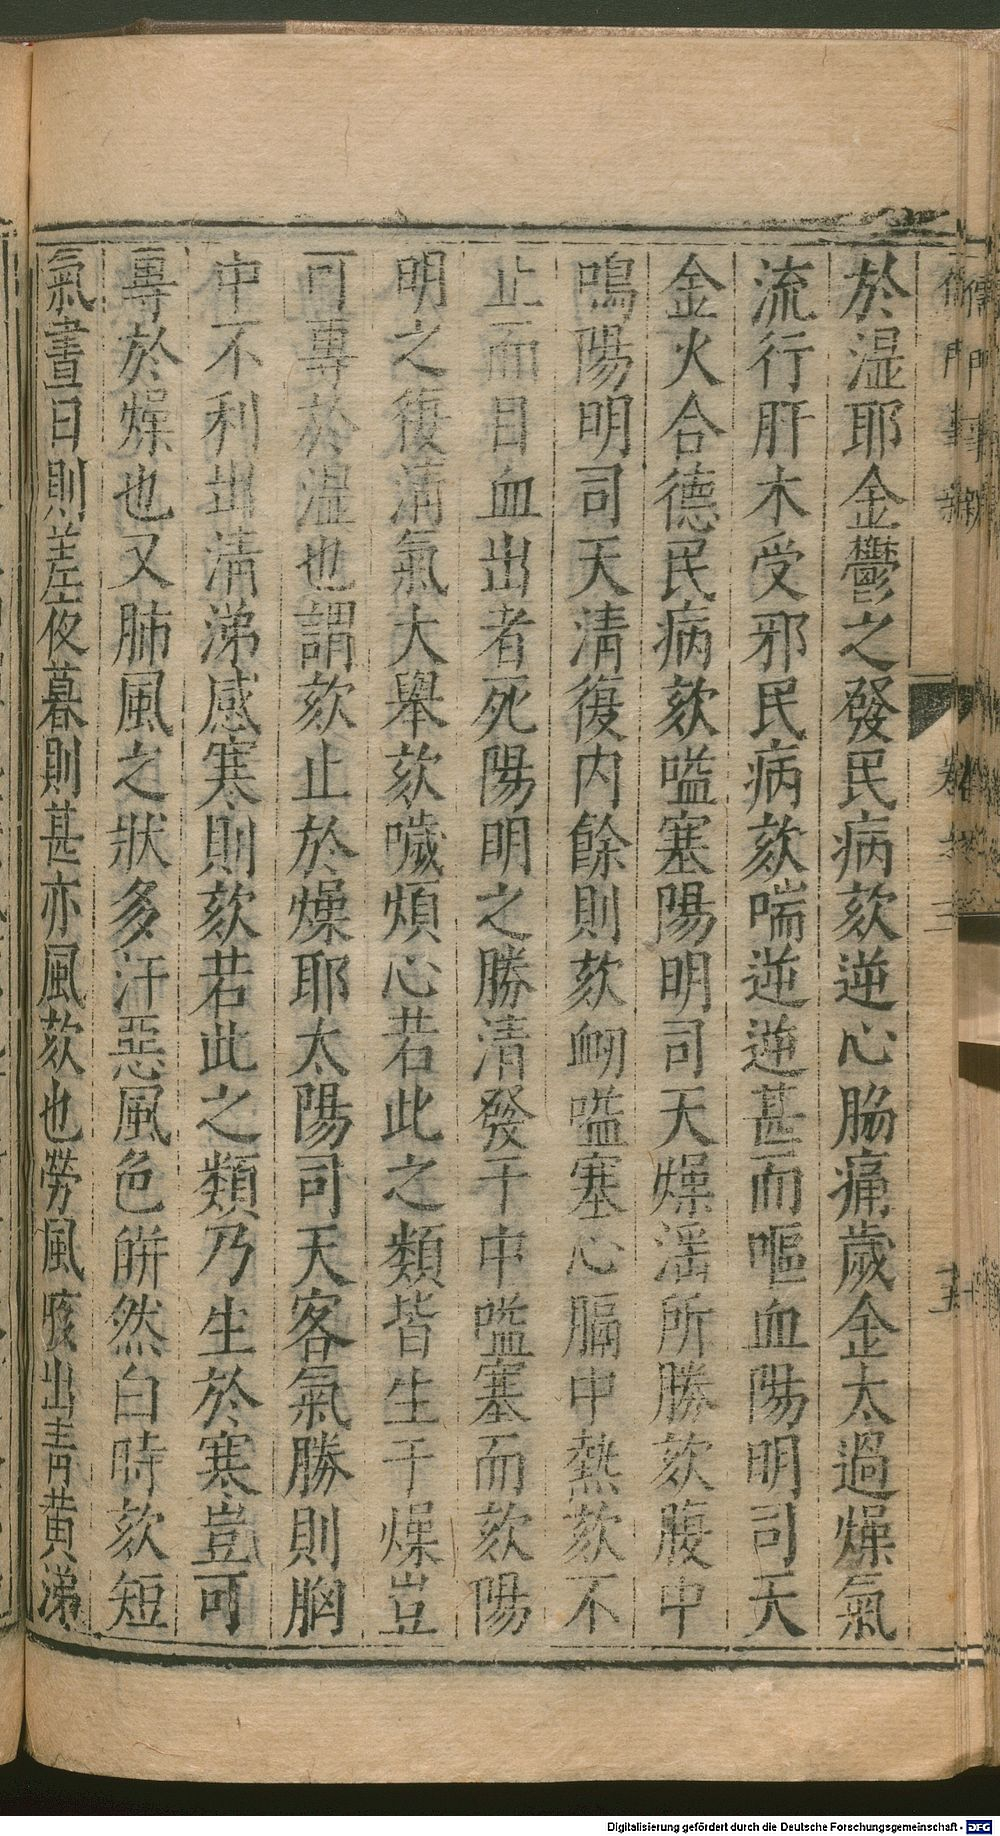 於濕耶金鬱之發民病欬逆心脇痛歲金太過燥氣
流行肝木受邪民病欬喘逆逆甚而嘔血陽明司天
金火合德民病欬嗌塞陽明司天燥滛所勝欬腹中
鳴陽明司天清復內餘則欬衂嗌塞心膈中熱欬不
止而目血出者死陽明之勝清發于中嗌塞而欬陽
明之復清氣大舉欬噦煩心若此之類皆生于燥豈
可專於濕也謂欬止於燥耶太陽司天客氣勝則胸
中不利出清涕感寒則欬若此之類乃生於寒豈可
專於燥也又肺風之狀多汗惡風色皏然白時欬短
氣晝日則差夜暮則甚亦風欬也勞風咳出青黃涕
儒門事親
卷之三
十五
Digitalisierung gefördert durch die Deutsche Forschungsgemeinschaft - DFG